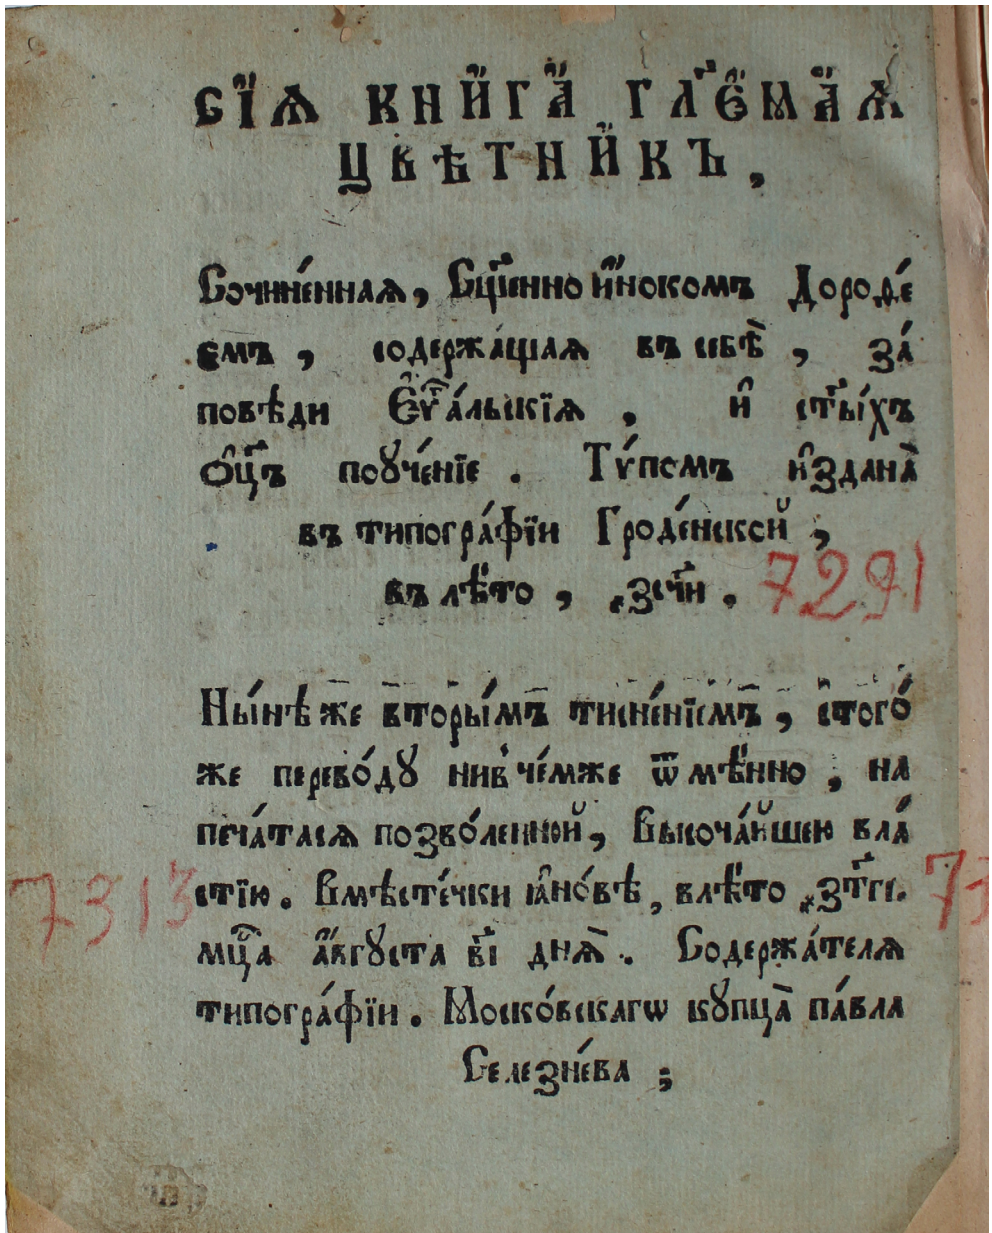 сїѧ кни́га̀ гл҃є́маѧ
цвѣтни́къ,
Сочине́ннаѧ, Сщ҃е́нно и҆́нокомъ Дороѳе́
емъ, содержа́щаѧ въ себѣ̀, за́
повѣ́ди Є҆ѵⷢ҇а́льскїѧ, и҆ ст҃ы́хъ
ѻ҆ц҃ъ поꙋче́нїе. Тѵ́помъ и҆здана̀
въ типогра́фїи Гроде́нской,
въ лѣ́то, ҂зс҃чи. 7291
Ны́нѣ же вторы́мъ тисне́нїемъ, стого́
же перево́дꙋ нив че́мже ѿмѣ́нно, на
печа́тасѧ позво́ленной, Высоча́йшею вла́
7313 стїю. Вмѣсте́чки ꙗ҆но́вѣ, влѣ́то ҂зт҃гі. 73
мц҃а а҆́вгꙋста в҃і днѧ̀. Содержа́телѧ
типогра́фїи. Моско́вскагѡ кꙋпца̀ па́вла
Селезне́ва;